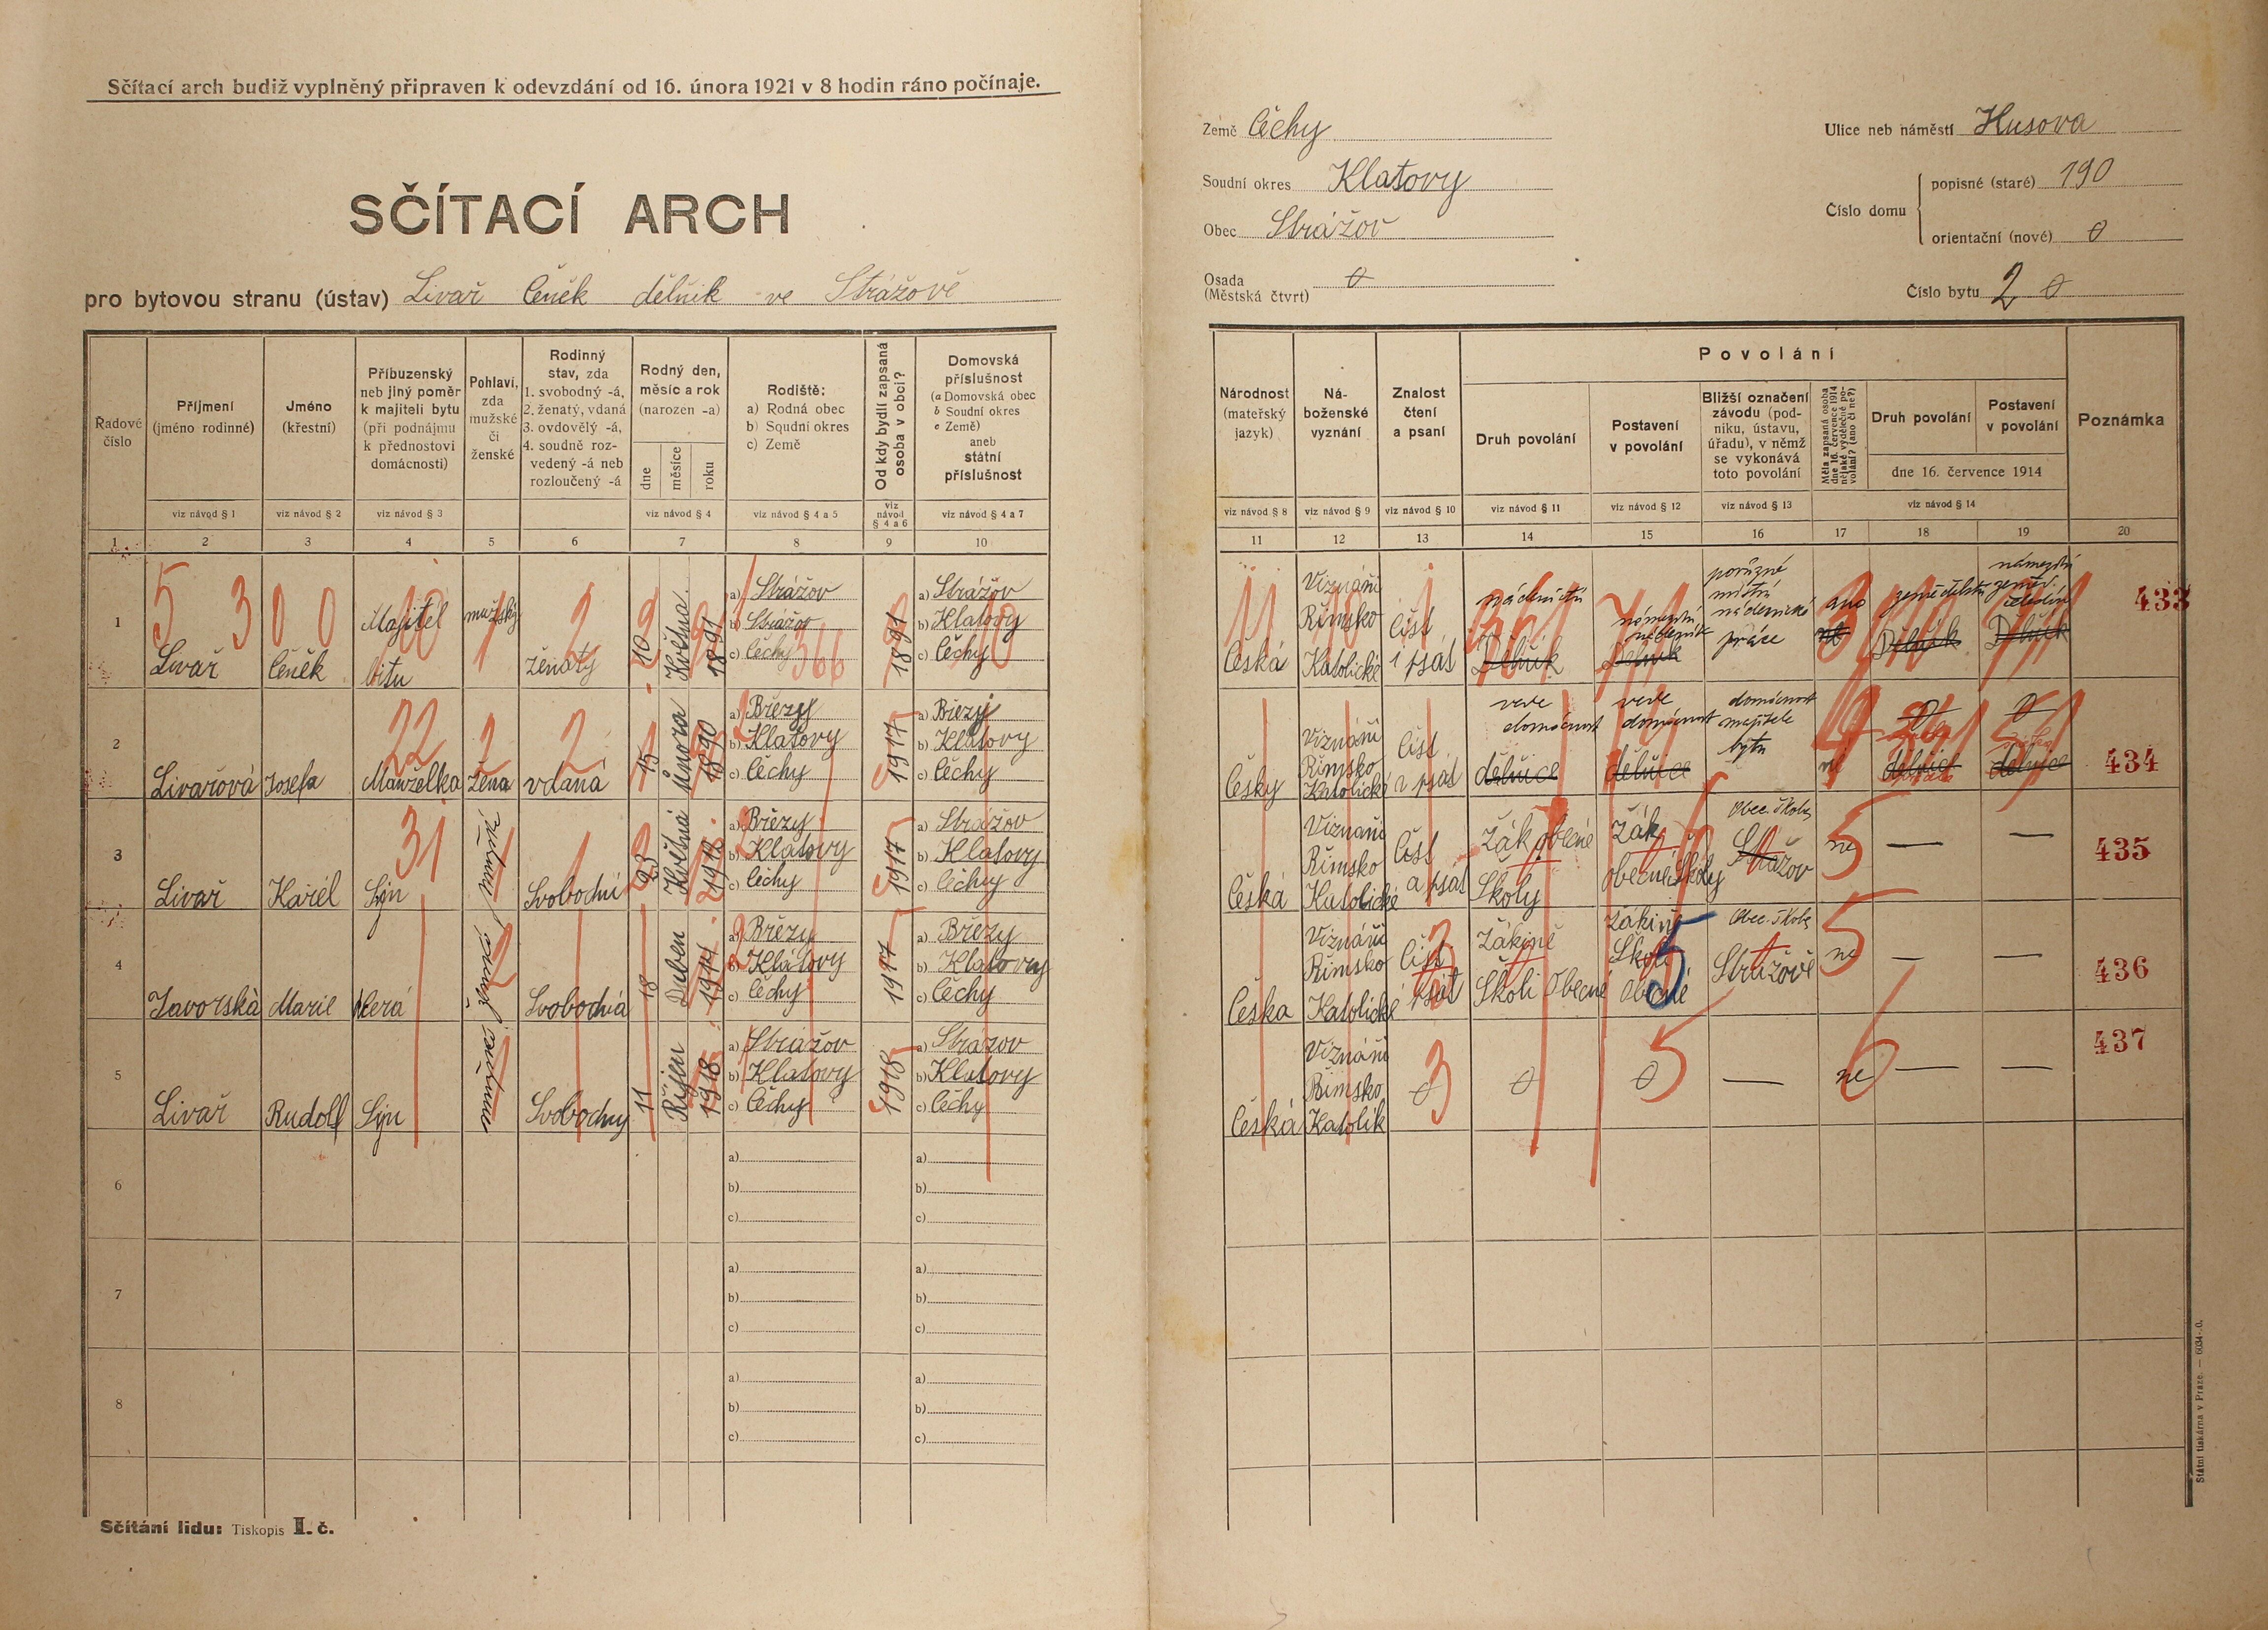 Sčítací arch budiž vyplněný připraven k odevzdání od 16. února 1921 v 8 hodin ráno počínaje.
SČÍTACÍ ARCH
pro bytovou stranu (ústav) Livař Čeněk dělník ve Strážově
Země Čechy
Soudní okres Klatovy
Obec Strážov
Osada (Městská čtvrť) 0
Ulice neb náměstí Husova
Číslo domu
popisné (staré) 190
orientační (nové) 0
Číslo bytu 2 0
Řadové číslo
Příjmení (jméno rodinné)
Jméno (křestní)
Příbuzenský neb jiný poměr k majiteli bytu (při podnájmu k přednostovi domácnosti)
Pohlaví, zda mužské či ženské
Rodinný stav, zda 1. svobodný -á, 2. ženatý, vdaná 3. ovdovělý -á, 4. soudně rozvedený -á neb rozloučený -á
Rodný den, měsíc a rok (narozen -a)
dne měsíce roku
Rodiště: a) Rodná obec b) Soudní okres c) Země
Od kdy bydlí zapsaná osoba v obci?
Domovská příslušnost (a Domovská obec b Soudní okres c Země) aneb státní příslušnost
Národnost (mateřský jazyk)
Náboženské vyznání
Znalost čtení a psaní
Povolání
Druh povolání
Postavení v povolání
Bližší označení závodu (podniku, ústavu, úřadu), v němž se vykonává toto povolání
Měla zapsaná osoba dne 16. července 1914 nějaké výdělečné povolání? (ano či ne?)
Druh povolání
Postavení v povolání
dne 16. července 1914
Poznámka
viz návod § 1 viz návod § 2 viz návod § 3 viz návod § 4 viz návod § 4 a 5 viz návod § 4 a 6 viz návod § 4 a 7
viz návod § 8 viz návod § 9 viz návod § 10 viz návod § 11 viz návod § 12 viz návod § 13 viz návod § 14
1 2 3 4 5 6 7 8 9 10
11 12 13 14 15 16 17 18 19 20
1 Livař Čeněk Majitel bitu mužský ženatý 10 Května 1891 a) Strážov b) Strážov c) Čechy 1891 a) Strážov b) Klatovy c) Čechy
Česká Viznáňi Řimsko Katolické Číst i psát nádenictví Dělník námezdní nádeník Dělník porůzné místní nádenické práce ano ne zemědělství Dělník námezdní zeměd. čeledín Dělník 433
2 Livařová Josefa Manželka žena vdaná 15 Února 1890 a) Březy b) Klatovy c) Čechy 1917 a) Březy b) Klatovy c) Čechy
Česky Viznáňi Řimsko Katolické Číst a psát vede domácnost dělnice vede domácnost dělnice domácnost majitele bytu ne 0 dělnice 0 dělnice 434
3 Livař Karel Syn mužské Svobodní 23 Května 1912 a) Březy b) Klatovy c) Čechy 1917 a) Strážov b) Klatovy c) Čechy
Česká Viznáňi Řimsko Katolické Číst a psát Žák obecné Školy Žák obecné Školy Obec. škola Strážov ne — — 435
4 Javorská Marie Dcerá ženské Svobodná 18 Duben 1914 a) Březy b) Klatovy c) Čechy 1917 a) Březy b) Klatovy c) Čechy
Česka Viznáňi Řimsko Katolické Číst psát Žákině Školi Obecné Žákině Školi Obecné Obec. škola Strážově ne — — 436
5 Livař Rudolf Syn mužské Svobodny 11 Říjen 1918 a) Strážov b) Klatovy c) Čechy 1918 a) Strážov b) Klatovy c) Čechy
Česká Viznáňi Řimsko Katolik 0 0 0 — ne — — 437
6 a) b) c) a) b) c)
7 a) b) c) a) b) c)
8 a) b) c) a) b) c)
Sčítání lidu: Tiskopis I. č.
Státní tiskárna v Praze. — 6034-0.